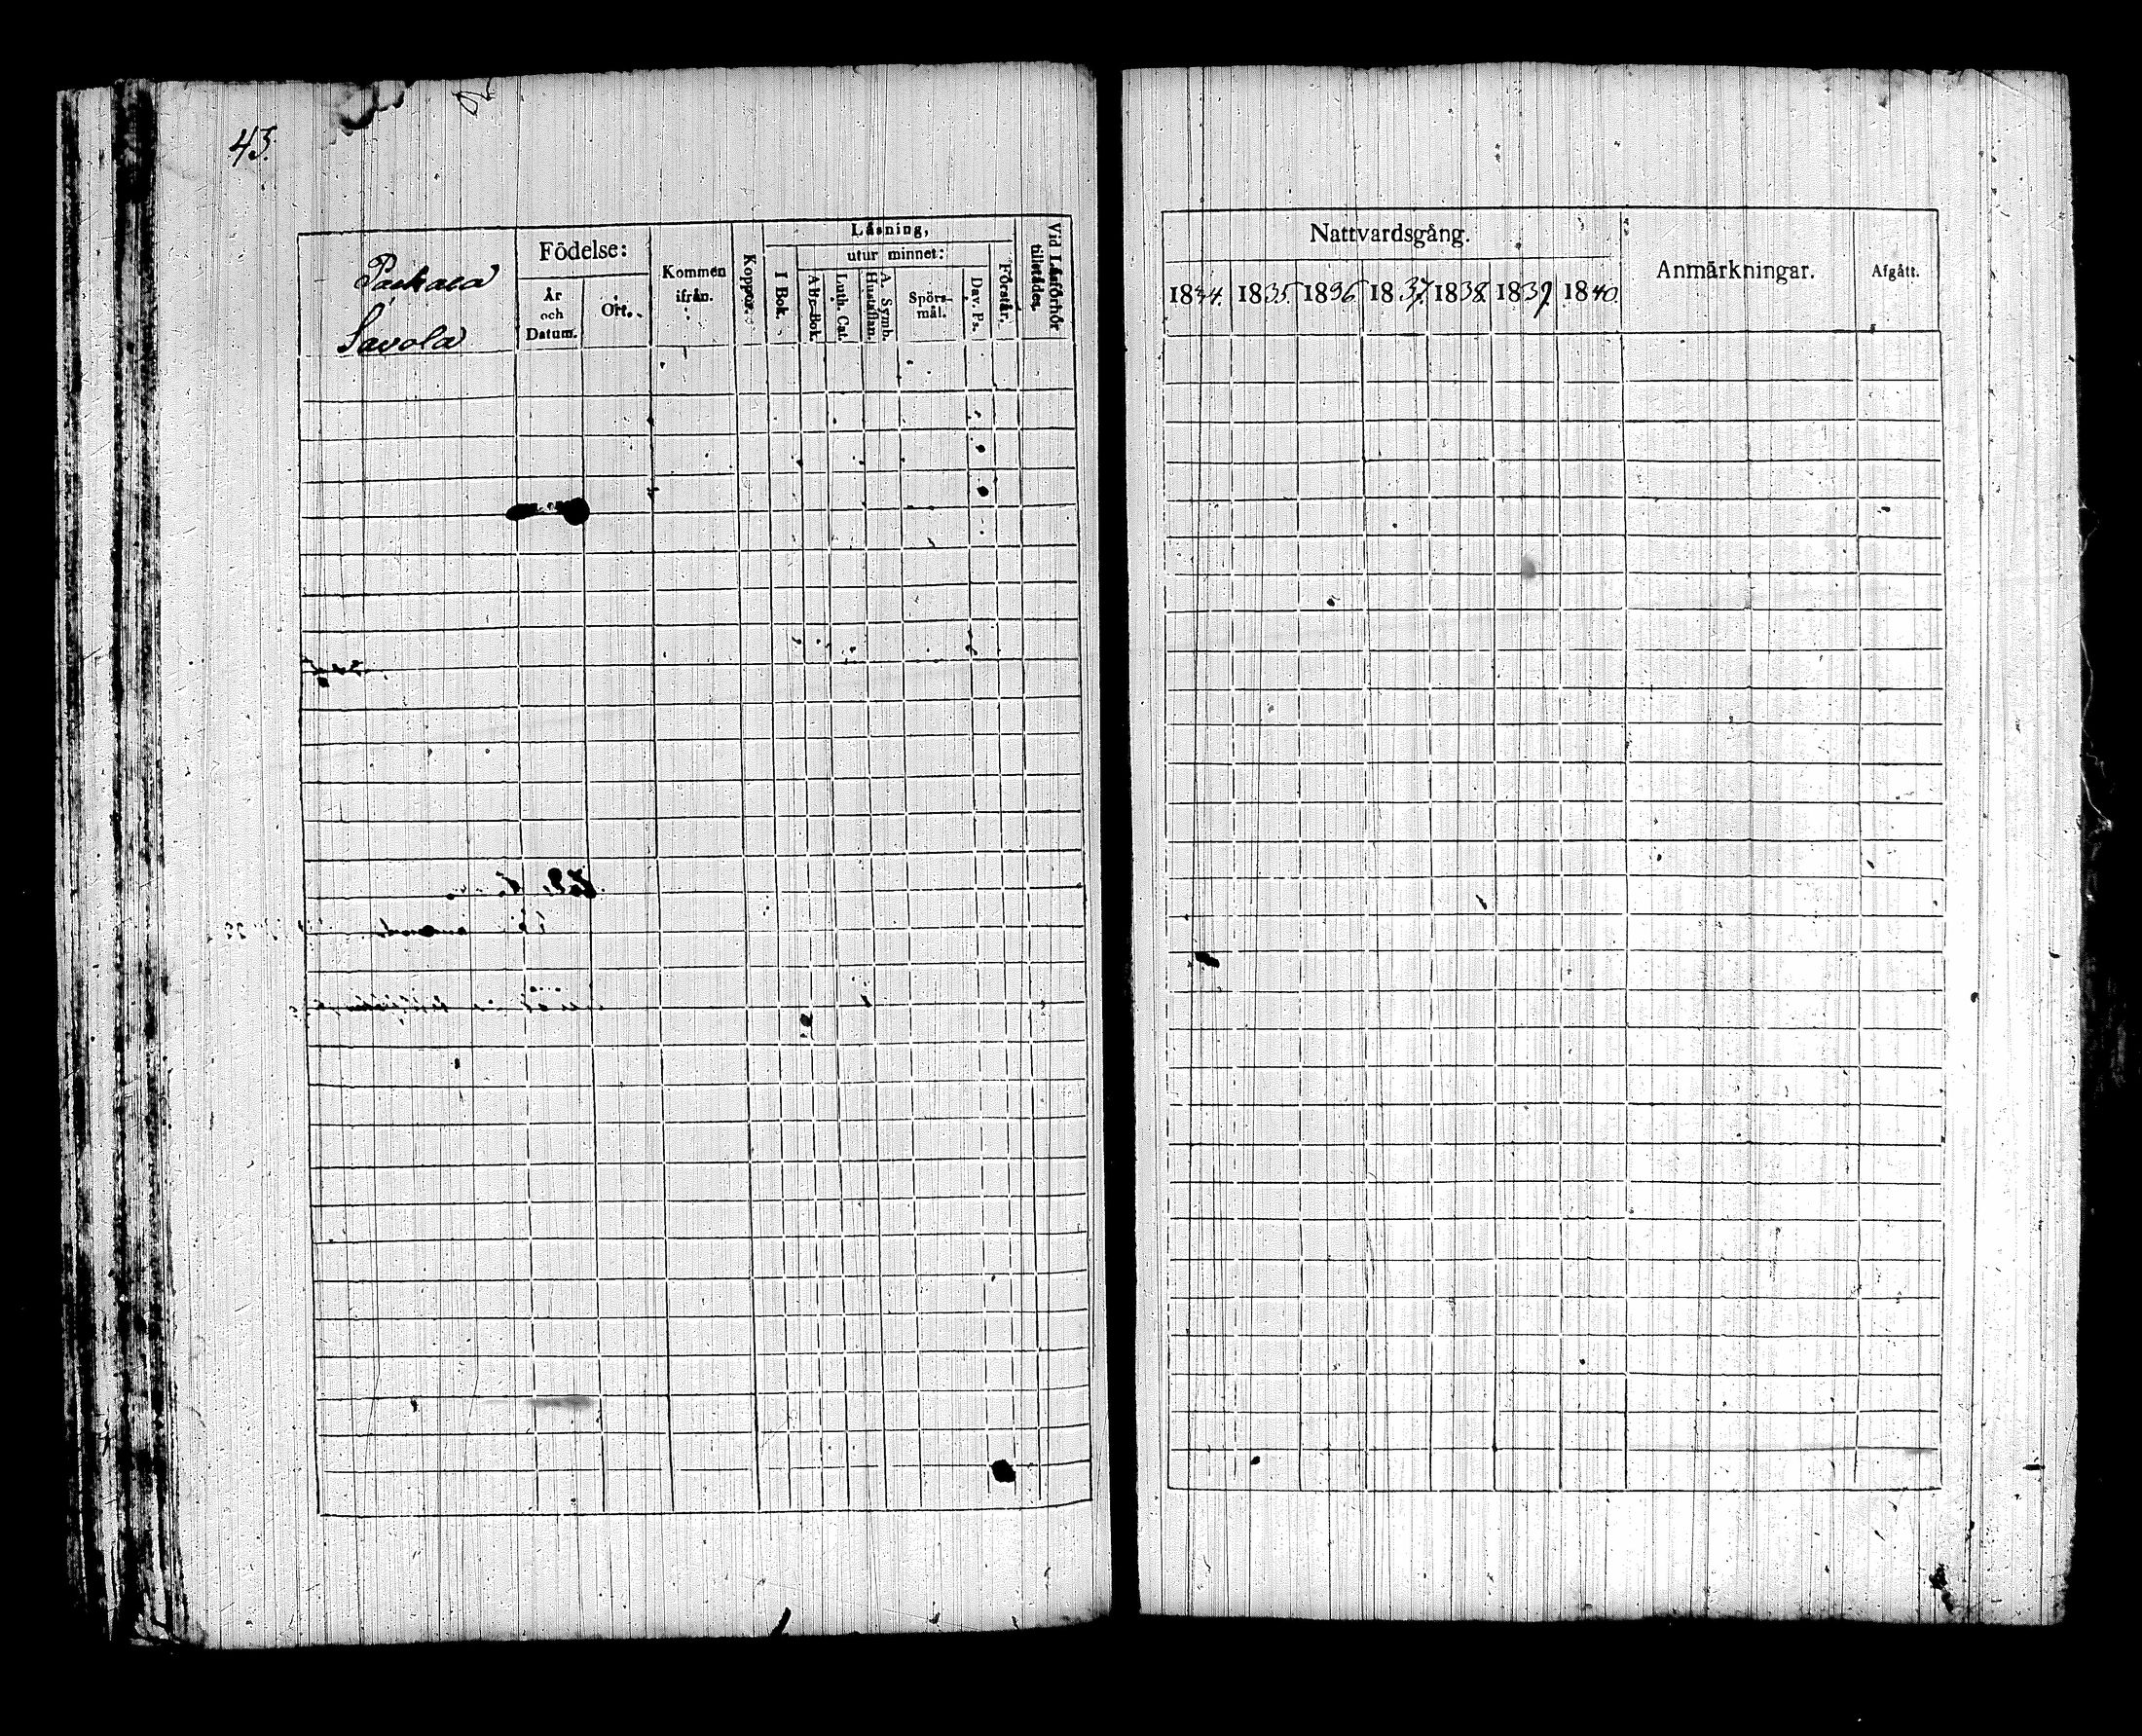 43.
Savola
Födelse:
År
och
Datum.
Ort.
Kommen
ifrån.
Koppor.
Läsning,
I Bok.
utur minnet:
A B C-Bok.
Luth. Cat.
Hustaflan.
A. Symb.
Spörs-
mål.
Dav. Ps.
Förstår.
Vid Läsförhör
tillstådes.
Nattvardsgång.
1834. 1835. 1836 1837. 1838. 1839. 1840.
Anmärkningar.
Afgått.